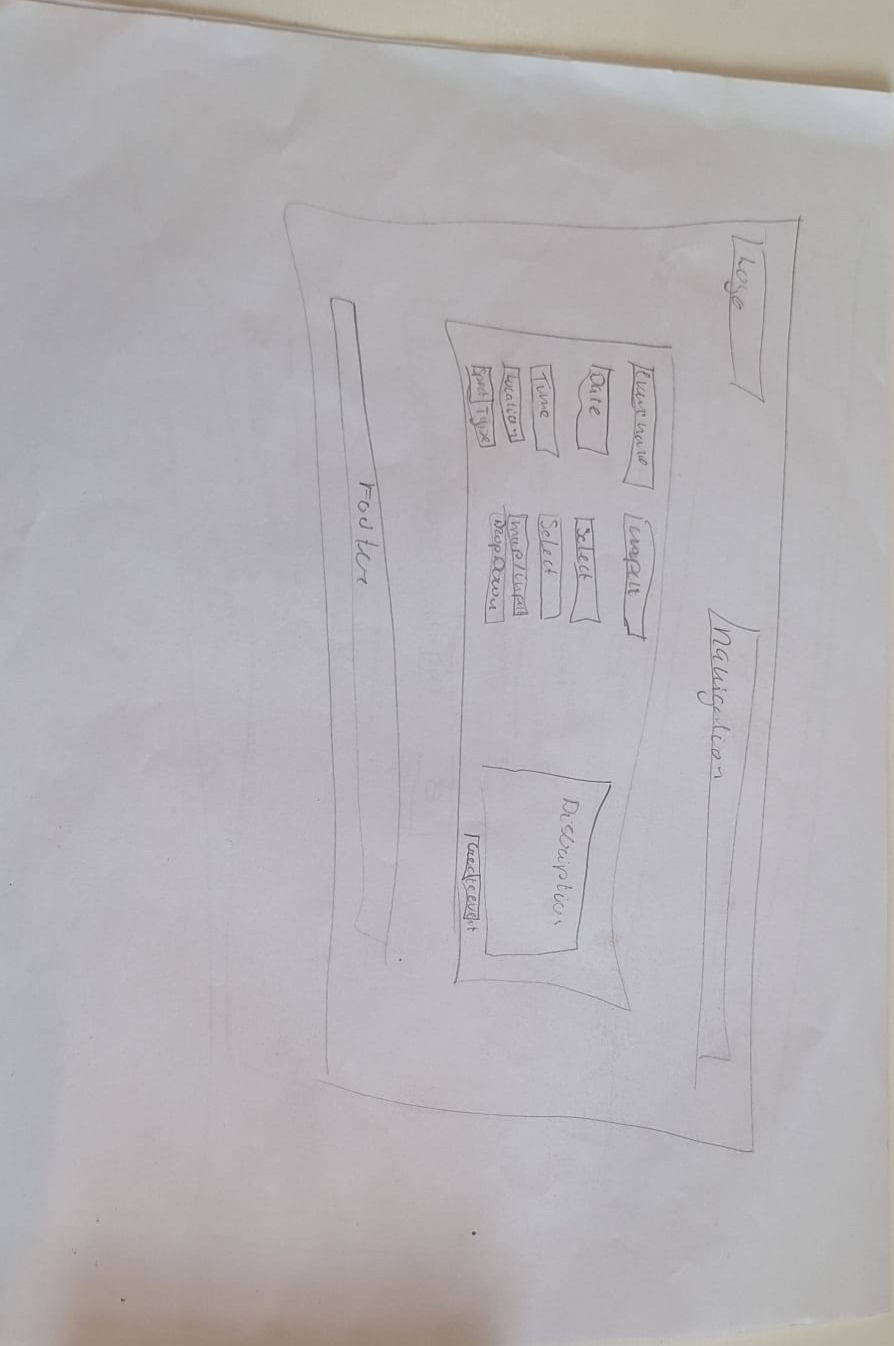 Logo
Navigation
Event name
input
Date
Select
Time
Select
Location
map/input
Sport Type
DropDown
Discription
Create event
Footer